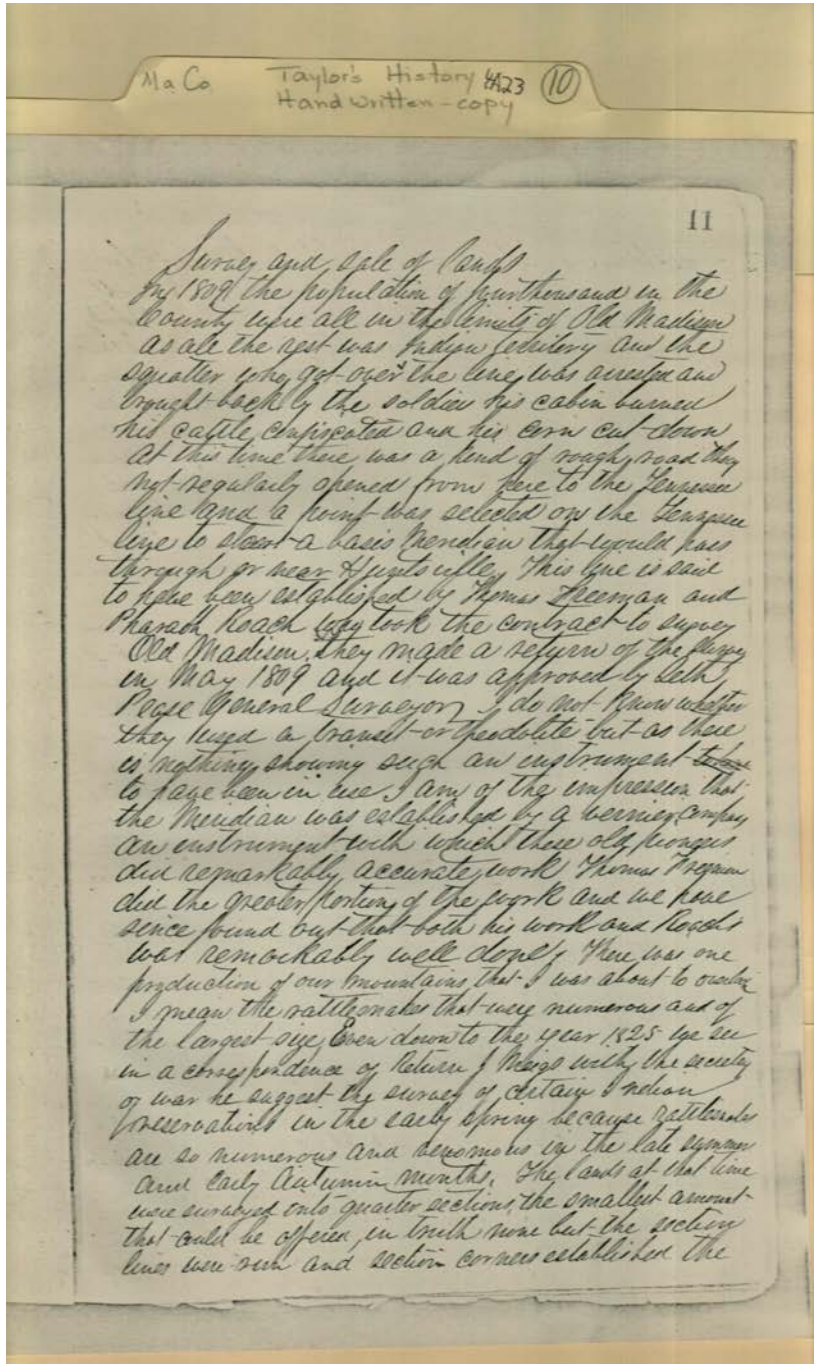 Ma Co Taylor's History 4A23 10
Handwritten - copy
11
Survey and sale of lands
In 1809 the population of four thousand in the
County were all in the limits of Old Madison
as all the rest was Indian territory and the
squatter who got over the line was arrested and
brought back by the soldiers his cabin burned
his cattle confiscated and his corn cut down
At this time there was a kind of rough road tho
not regularly opened from here to the Tennessee
line and a point was selected on the Tennessee
line to start a basis Meridian that would pass
through or near Huntsville, This line is said
to have been established by Thomas Freeman and
Pharaoh Roach who took the contract to survey
Old Madison. They made a return of the survey
in May 1809 and it was approved by Seth
Pease General Surveyor, I do not know whether
they used a transit or theodolite but as there
is nothing showing such an instrument
to have been in use I am of the impression that
the Meridian was established by a vernier compass
an instrument with which these old pioneers
did remarkably accurate work Thomas Freeman
did the greater portion of the work and we have
since found out that both his work and Roachs
was remarkably well done, There was one
production of our mountains that I was about to overlook
I mean the rattlesnakes that were numerous and of
the largest size, Even down to the year 1825 we see
in a correspondence of Return J Meigs with the secretary
of war he suggest the survey of certain Indian
reservations in the early spring because rattlesnakes
are so numerous and venomous in the late summer
and early Autumn months. The lands at that time
were surveyed into quarter sections, the smallest amount
that could be offered, in truth none but the section
lines were run and section corners established the